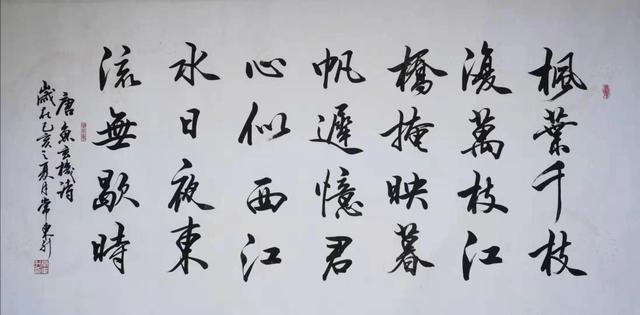 楓葉千枝
復萬枝江
橋掩映暮
帆遲憶君
心似西江
水日夜東
流無歇時
唐魚玄機詩
歲在己亥之夏月常